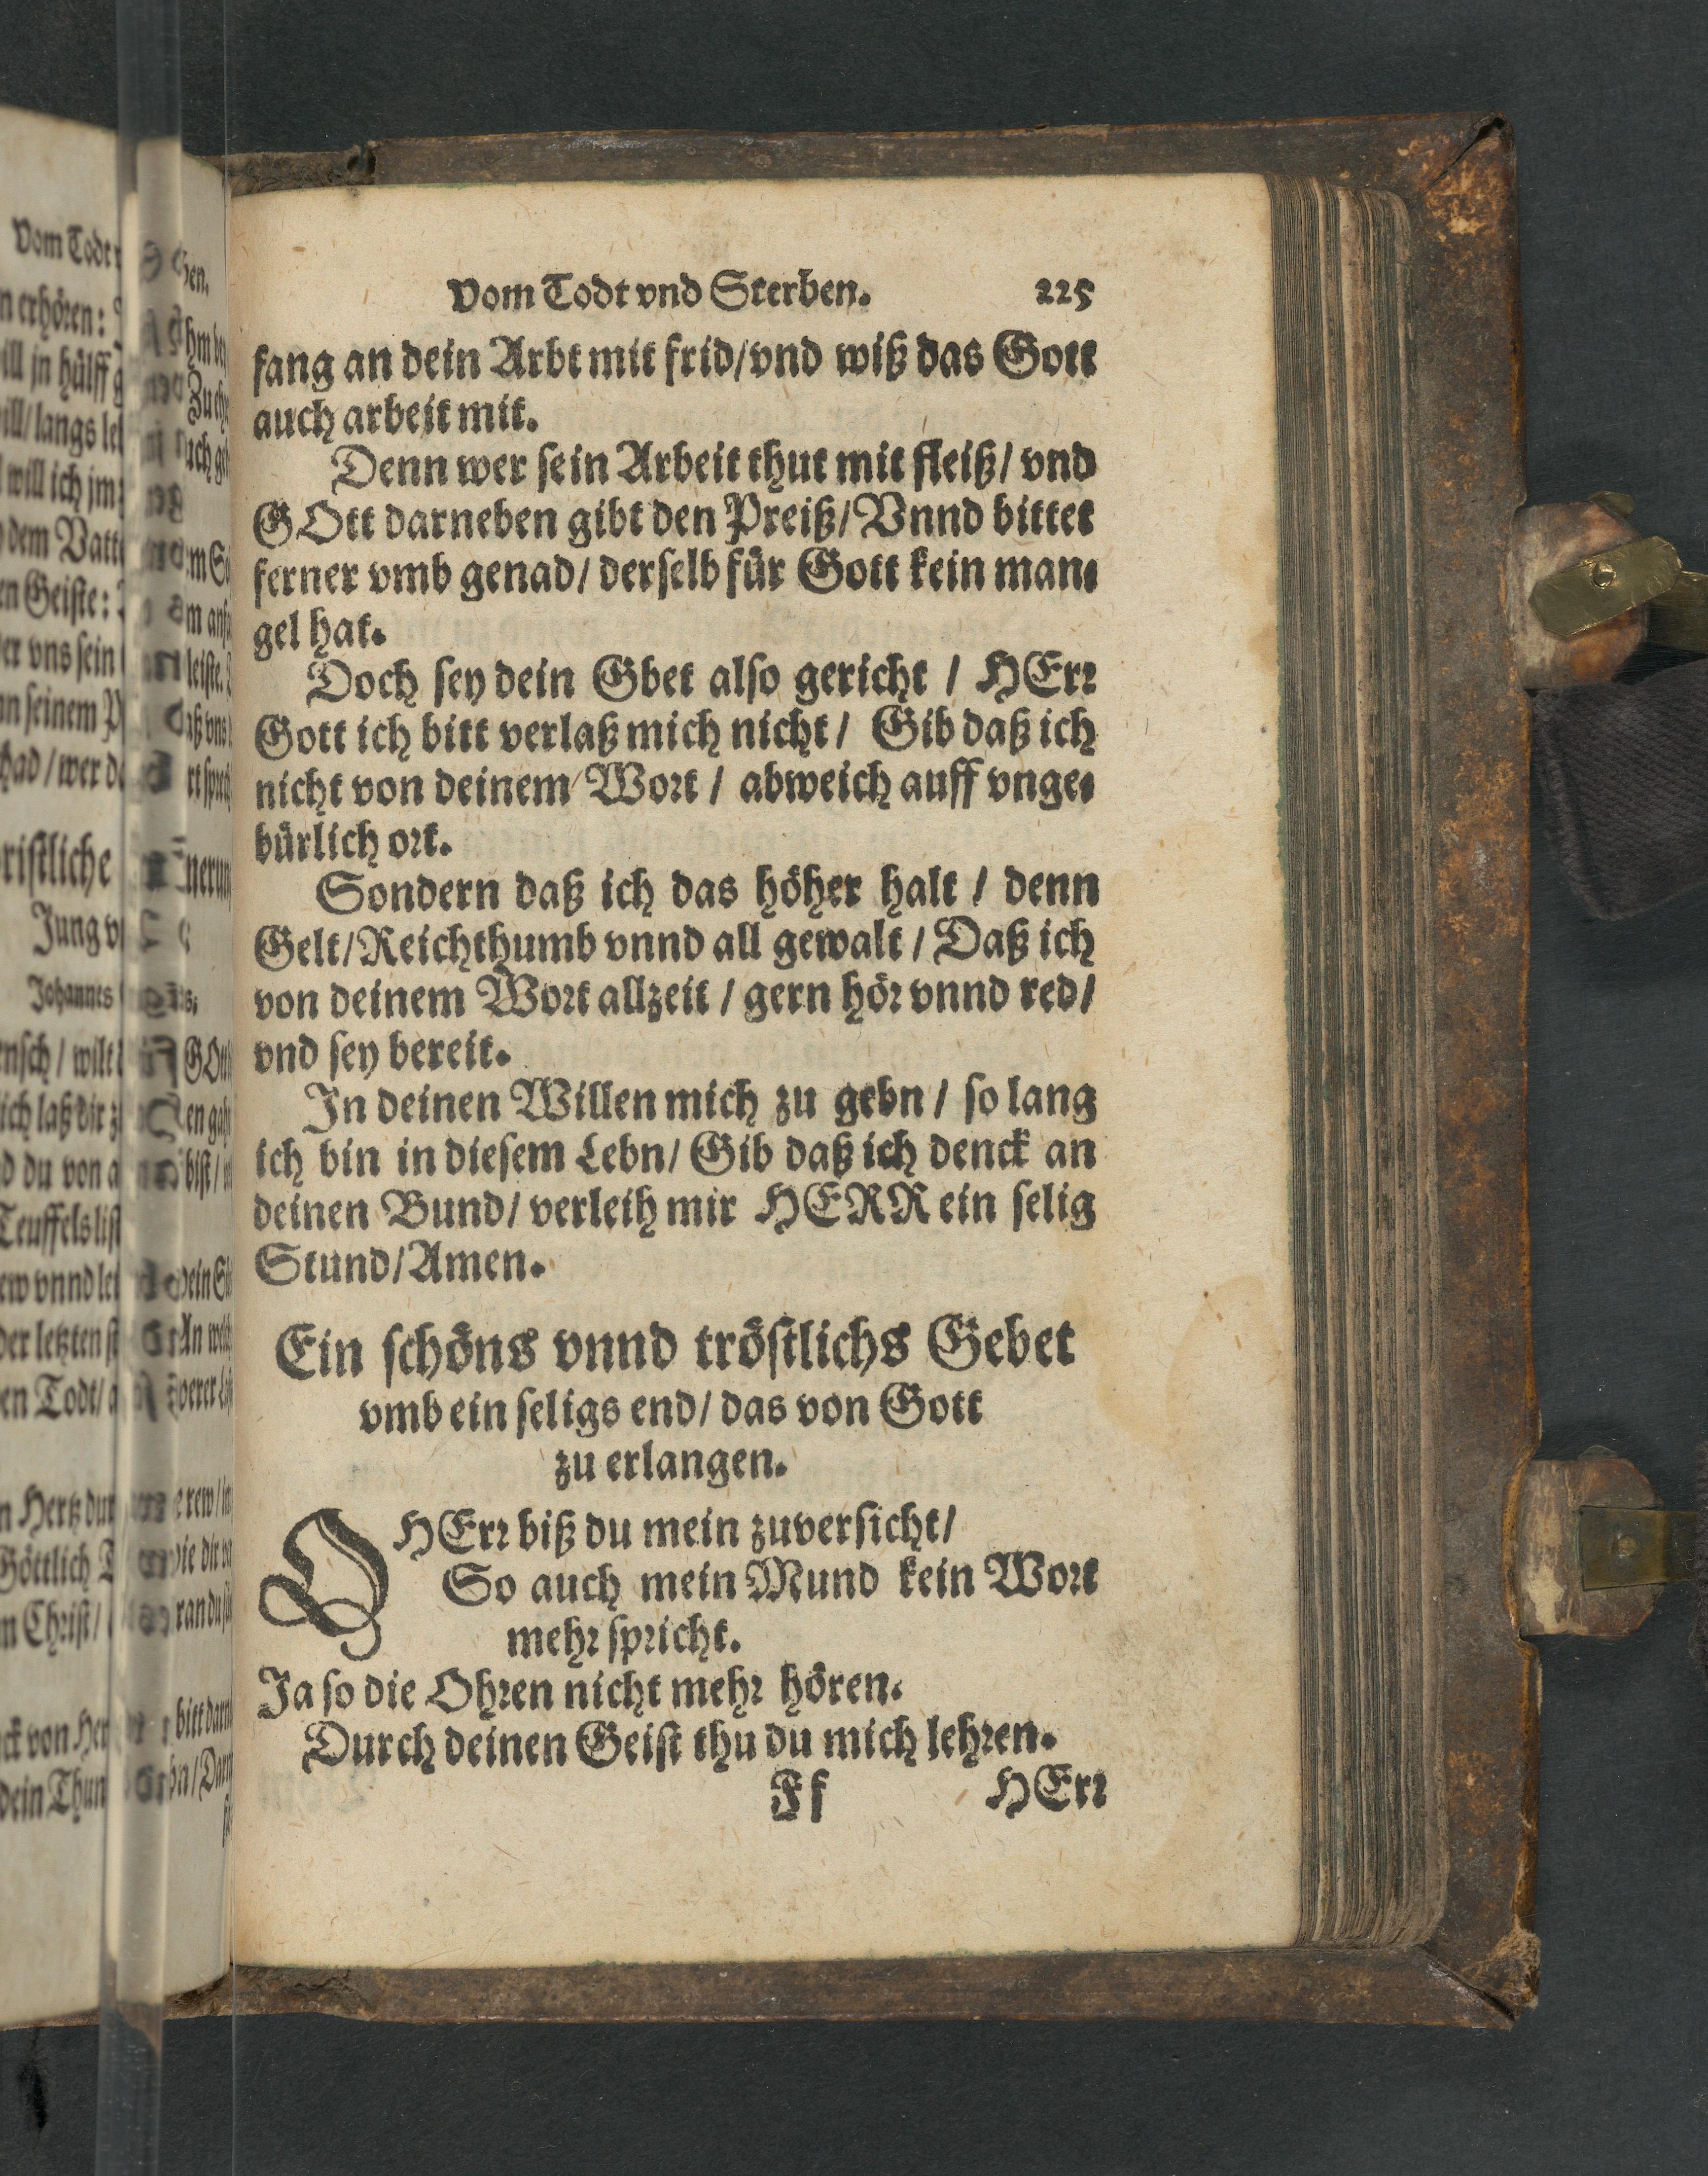 Vom Todt vnd Sterben. 225
fang an dein Arbt mit frid/vnd wiß das Gott
auch arbeit mit.
Denn wer sein Arbeit thut mit fleiß/ vnd
GOtt darneben gibt den Preiß/Vnnd bittet
ferner vmb genad/ derselb für Gott kein man-
gel hat.
Doch sey dein Gbet also gericht / HErr
Gott ich bitt verlaß mich nicht/ Gib daß ich
nicht von deinem Wort / abweich auff vnge-
bürlich ort.
Sondern daß ich das höher halt / denn
Gelt/Reichthumb vnnd all gewalt / Daß ich
von deinem Wort allzeit / gern hör vnnd red/
vnd sey bereit.
In deinen Willen mich zu gebn / so lang
ich bin in diesem Lebn/ Gib daß ich denck an
deinen Bund/ verleih mir HERR ein selig
Stund/Amen.
Ein schöns vnnd tröstlichs Gebet
vmb ein seligs end/ das von Gott
zu erlangen.
O HErr biß du mein zuversicht/
So auch mein Mund kein Wort
mehr spricht.
Ja so die Ohren nicht mehr hören.
Durch deinen Geist thu du mich lehren.
Ff HErr